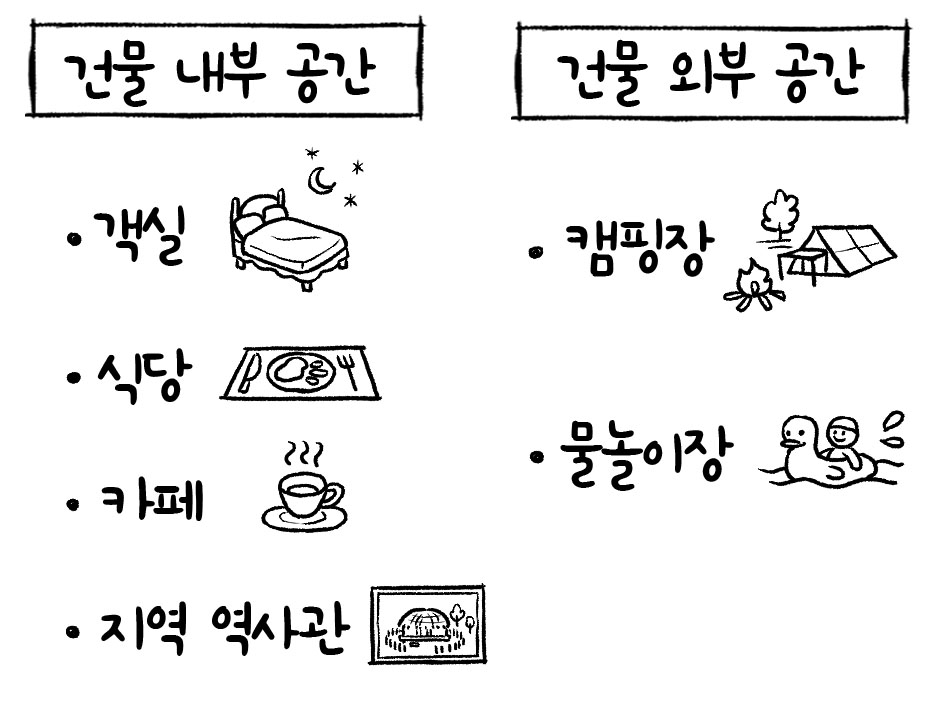 건물 내부 공간
• 객실
• 식당
• 카페
• 지역 역사관
건물 외부 공간
• 캠핑장
• 물놀이장